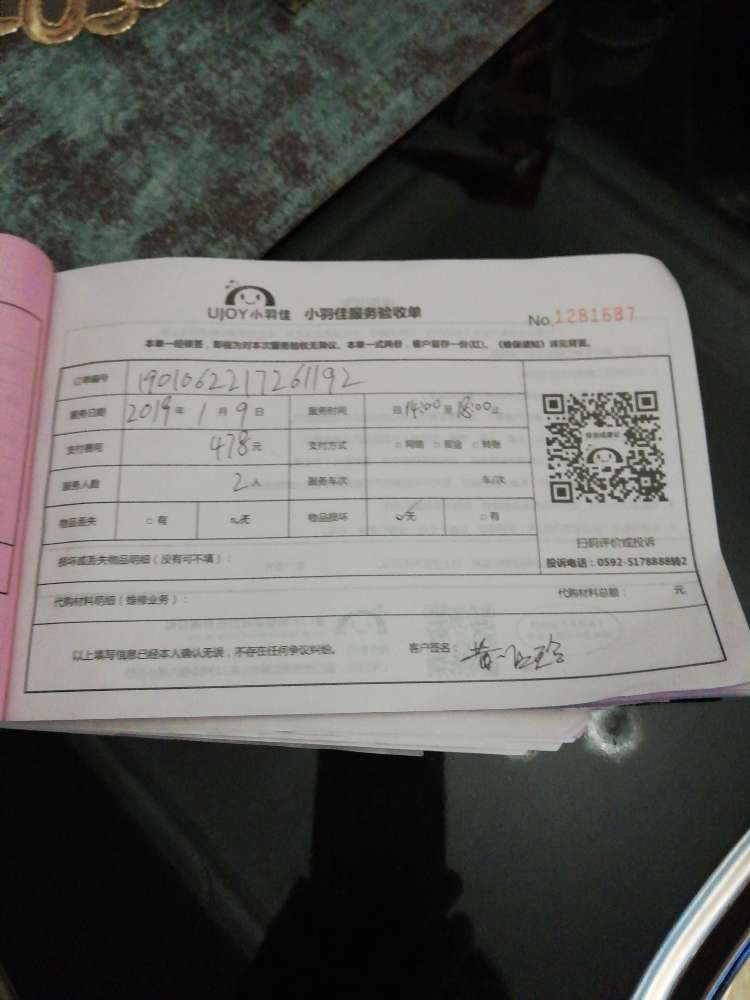 UJOY小羽佳 小羽佳服务验收单
No.1281687
本单一经接签，即视为对本次服务验收无异议。本单一式两份，客户留存一份(红)。《维保须知》详见背面。
订单编号 1901062217261192
服务日期 2019年1月9日 服务时间 自14:00至18:00止
支付费用 478元 支付方式 □网络 □现金 □转账
服务人数 2人 服务车次 车/次
物品丢失 □有 □无 物品损坏 □无 □有
损坏或丢失物品明细（没有可不填）：
扫码评价或投诉
投诉电话：0592-5178888转2
代购材料明细（维修业务）： 代购材料总额： 元
以上填写信息已经本人确认无误，不存在任何争议纠纷。 客户签名：